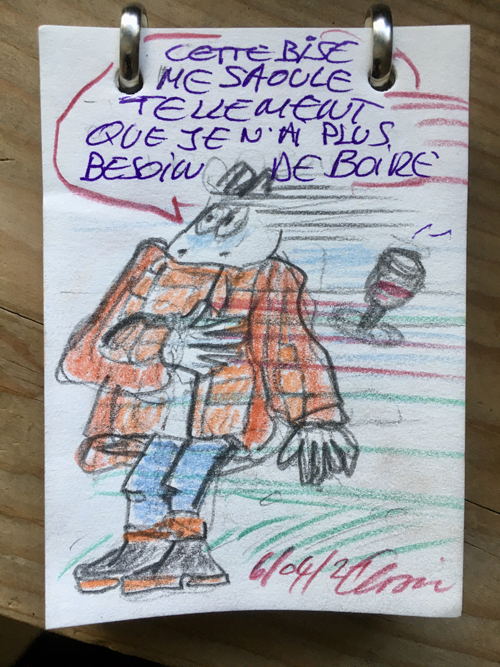 CETTE BISE
ME SAOULE
TELLEMENT
QUE JE N'AI PLUS
BESOIN DE BOIRE
6/04/21